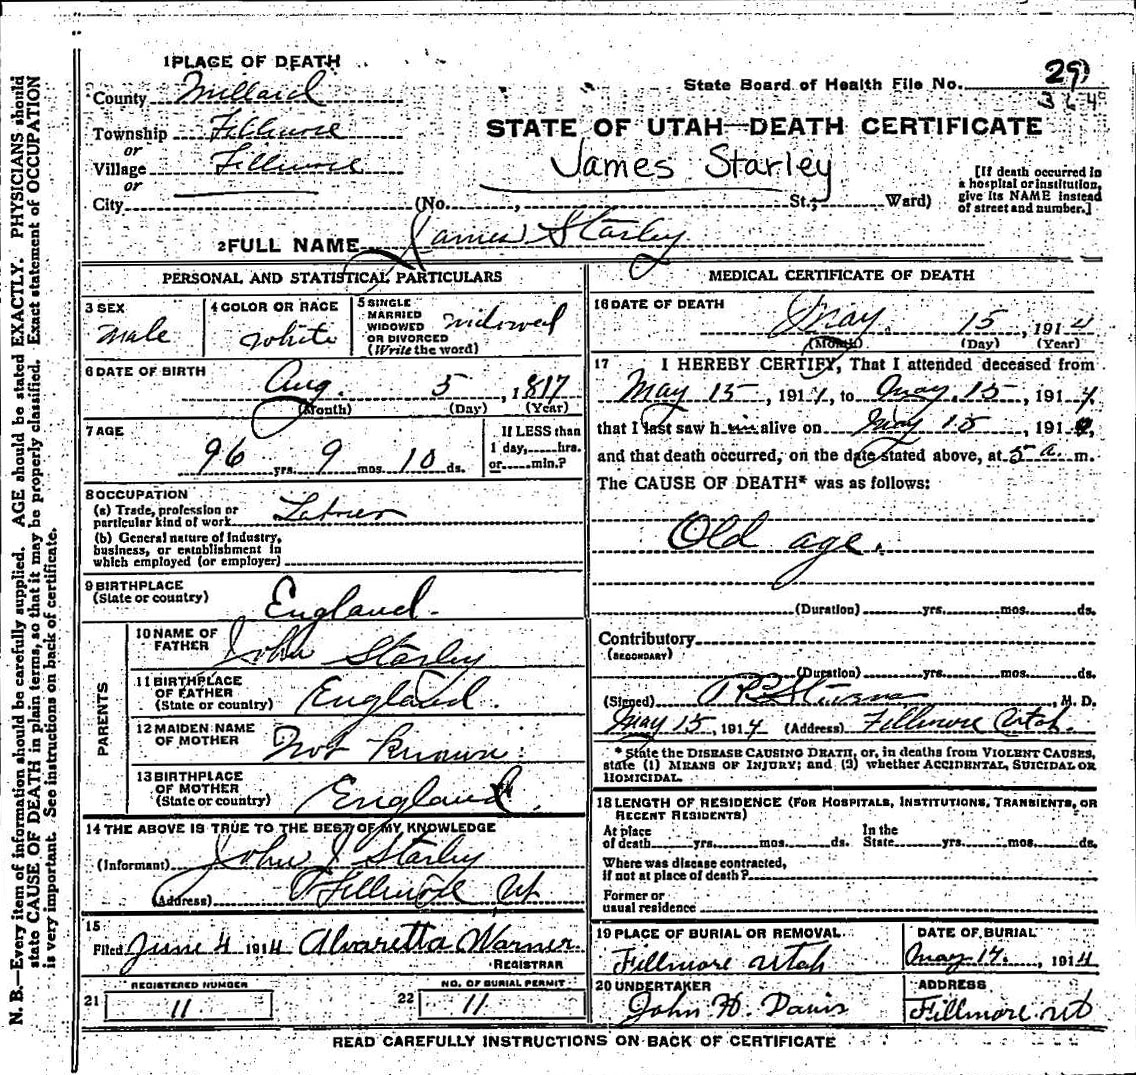 N. B.—Every item of information should be carefully supplied. AGE should be stated EXACTLY. PHYSICIANS should
state CAUSE OF DEATH in plain terms, so that it may be properly classified. Exact statement of OCCUPATION
is very important. See instructions on back of certificate.
1 PLACE OF DEATH
County Millard
Township Fillmore
or
Village Fillmore
or
City (No. , St.; Ward)
State Board of Health File No. 29
364
STATE OF UTAH—DEATH CERTIFICATE
James Starley
[If death occurred in
a hospital or institution,
give its NAME instead
of street and number.]
2 FULL NAME James Starley
PERSONAL AND STATISTICAL PARTICULARS
3 SEX
Male
4 COLOR OR RACE
White
5 SINGLE
MARRIED
WIDOWED
OR DIVORCED
(Write the word)
widowed
6 DATE OF BIRTH
Aug. 5, 1817
(Month) (Day) (Year)
7 AGE
96 yrs. 9 mos. 10 ds.
If LESS than
1 day, hrs.
or min.?
8 OCCUPATION
(a) Trade, profession or
particular kind of work Labrer
(b) General nature of Industry,
business, or establishment in
which employed (or employer)
9 BIRTHPLACE
(State or country)
England.
PARENTS
10 NAME OF
FATHER
John Starley
11 BIRTHPLACE
OF FATHER
(State or country)
England.
12 MAIDEN NAME
OF MOTHER
Not known
13 BIRTHPLACE
OF MOTHER
(State or country)
England.
14 THE ABOVE IS TRUE TO THE BEST OF MY KNOWLEDGE
(Informant) John J Starley
(Address) Fillmore Ut
15
Filed June 4 1914 Alvaretta Warner
REGISTRAR
REGISTERED NUMBER
21 11
NO. OF BURIAL PERMIT
22 11
MEDICAL CERTIFICATE OF DEATH
16 DATE OF DEATH
May. 15, 1914
(Month) (Day) (Year)
17 I HEREBY CERTIFY, That I attended deceased from
May 15, 1914, to May. 15, 1914,
that I last saw him alive on May 15, 191
and that death occurred, on the date stated above, at 5 a. m.
The CAUSE OF DEATH* was as follows:
Old age.
(Duration) yrs. mos. ds.
Contributory
(SECONDARY)
(Duration) yrs. mos. ds.
(Signed) M. D.
May 15, 1914 (Address) Fillmore Utah.
*State the DISEASE CAUSING DEATH, or, in deaths from VIOLENT CAUSES,
state (1) MEANS OF INJURY; and (2) whether ACCIDENTAL, SUICIDAL OR
HOMICIDAL.
18 LENGTH OF RESIDENCE (FOR HOSPITALS, INSTITUTIONS, TRANSIENTS, OR
RECENT RESIDENTS)
At place
of death yrs. mos. ds.
In the
State yrs. mos. ds.
Where was disease contracted,
if not at place of death?
Former or
usual residence
19 PLACE OF BURIAL OR REMOVAL
Fillmore Utah
DATE OF BURIAL
May 17, 1914
20 UNDERTAKER
John H. Davis
ADDRESS
Fillmore Ut
READ CAREFULLY INSTRUCTIONS ON BACK OF CERTIFICATE